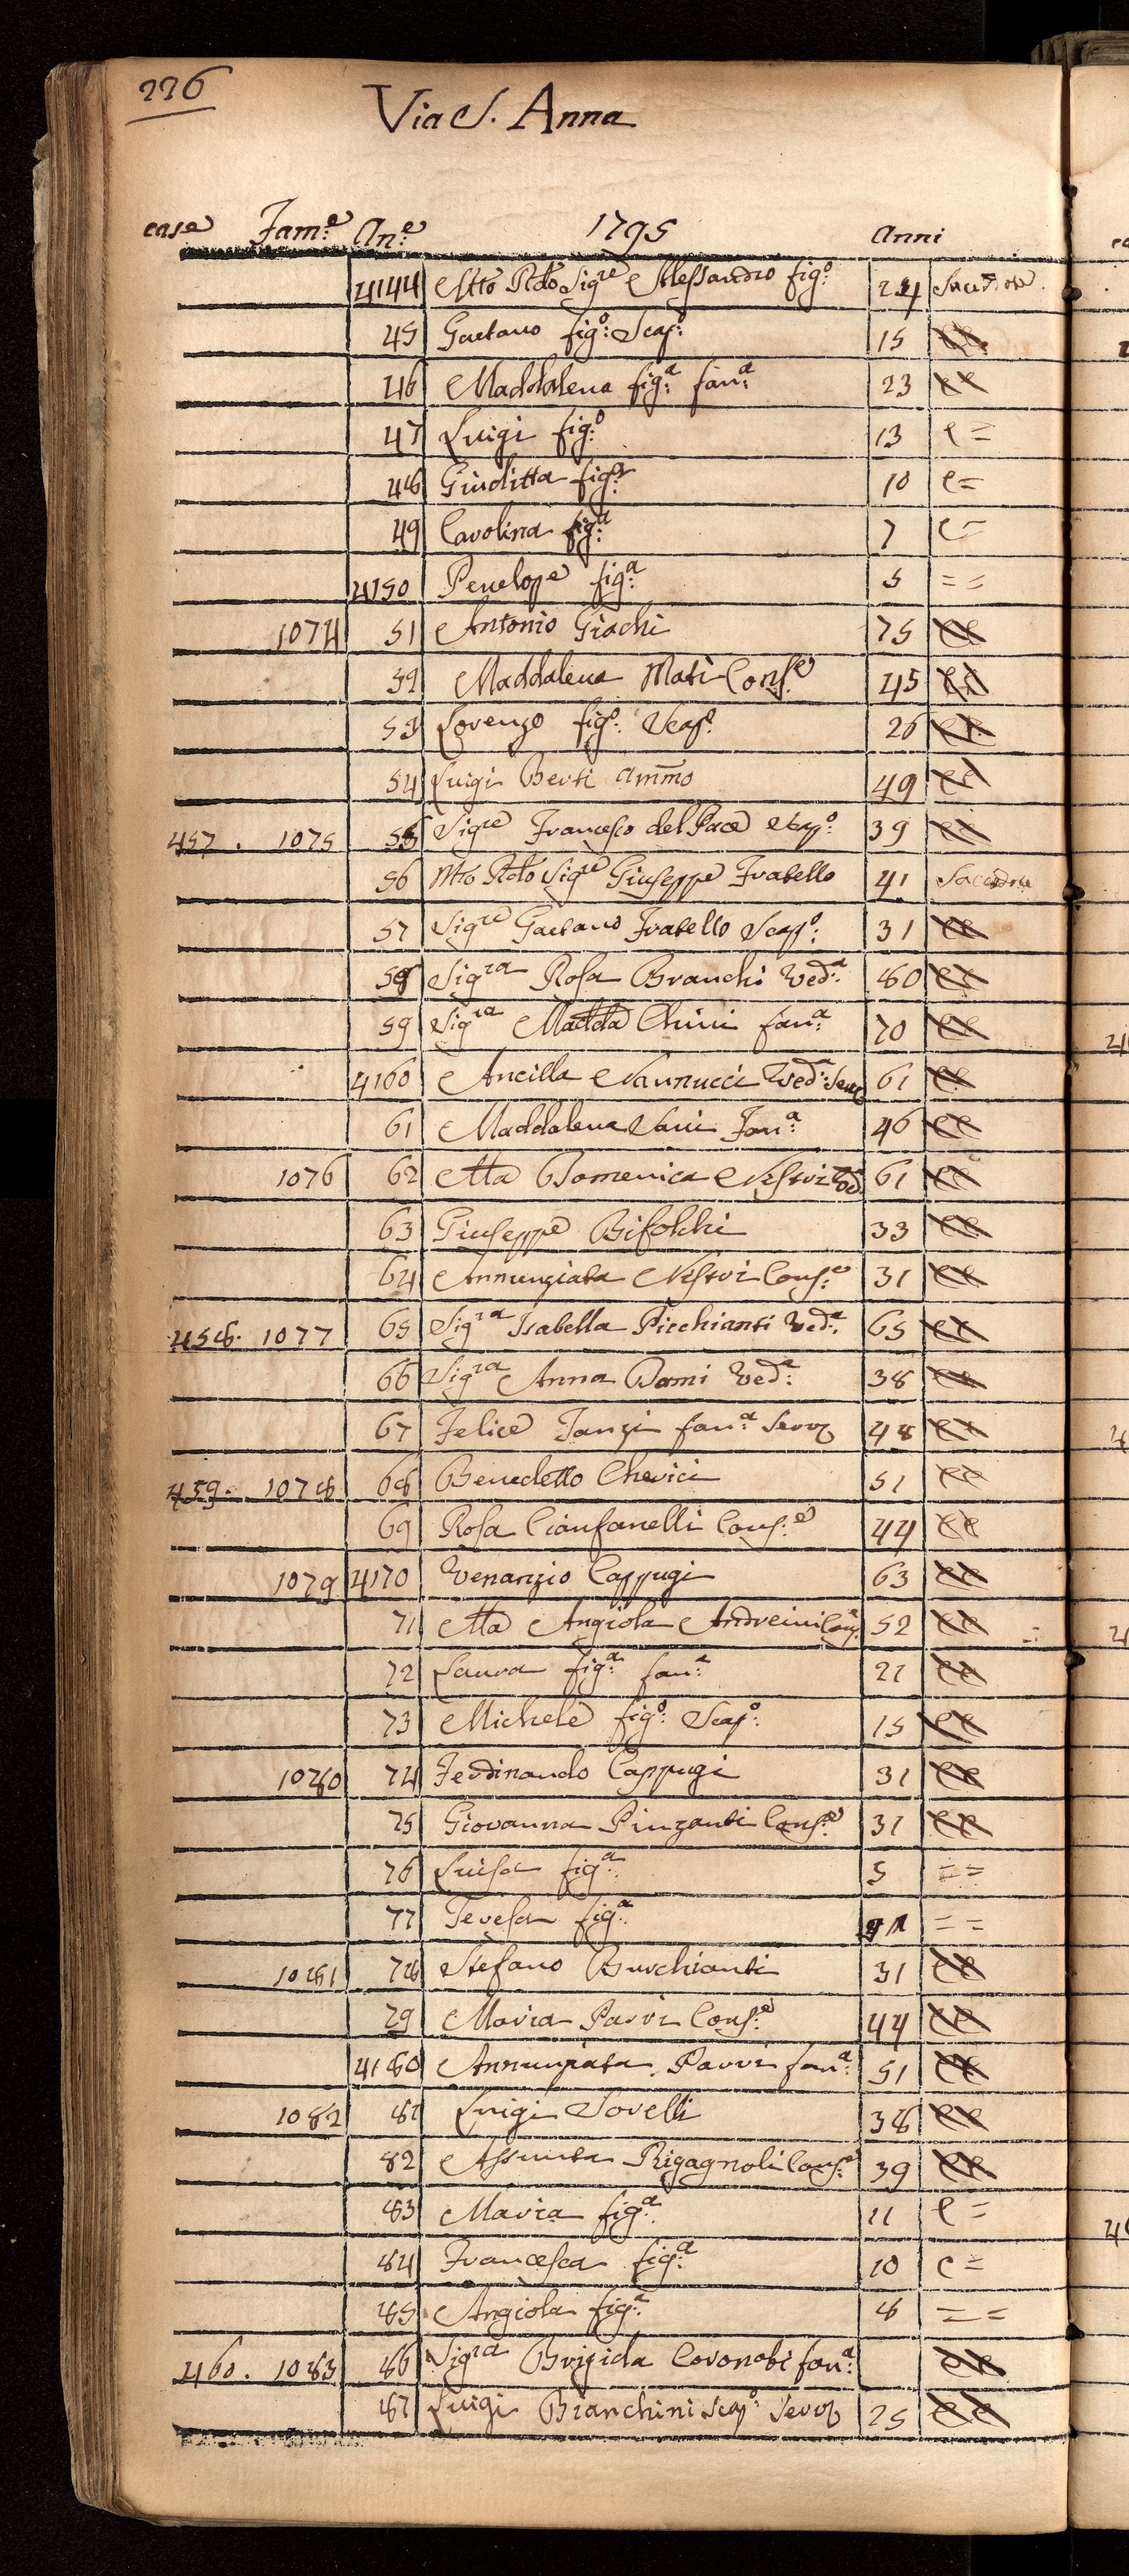 226
Via S. Anna
case Fam:e An:e 1795 Anni
4144 Mto Rdo Sigre Alessandro fig:o 24 Sacerdote
45 Gaetano fig:o Scap:o 15 cc
46 Maddalena fig:a fan:a 23 cc
47 Luigi fig:o 13 c =
48 Giuditta fig:a 10 c =
49 Carolina fig:a 7 c =
4150 Penelope fig:a 5 = =
1074 51 Antonio Giachi 75 cc
52 Maddalena Mati Cons:e 45 cc
53 Lorenzo fig:o Scap:o 26 cc
54 Luigi Berti Ammo 49 cc
457. 1075 55 Sigre Francesco del Pace Scap:o 39 cc
56 Mto Rdo Sigre Giuseppe Fratello 41 Sacerdote
57 Sigre Gaetano Fratello Scap:o 31 cc
58 Sigra Rosa Branchi Ved:a 80 cc
59 Sigra Madda Chini fan:a 70 cc
4160 Ancilla Nannucci Ved:a Serv 61 cc
61 Maddalena Vani Fan:a 46 cc
1076 62 Ma Domenica Nestri Ved 61 cc
63 Giuseppe Bifolchi 33 cc
64 Annunziata Nestri Cons:e 31 cc
458. 1077 65 Sigra Isabella Picchianti Ved:a 65 cc
66 Sigra Anna Dami Ved:a 38 cc
67 Felice Tanzi fan:a Serv 48 cc
459. 1078 68 Benedetto Cherici 51 cc
69 Rosa Cianfanelli Cons:e 44 cc
1079 4170 Venanzio Cappugi 63 cc
71 Ma Angiola Andreini Cons: 52 cc
72 Laura fig:a fan:a 21 cc
73 Michele fig:o Scap:o 15 cc
1080 74 Ferdinando Cappugi 31 cc
75 Giovanna Pinzanti Cons:e 31 cc
76 Luisa fig:a 5 = =
77 Teresa fig:a = =
1081 78 Stefano Burchianti 31 cc
79 Maria Parri Cons:e 44 cc
4180 Annunziata Parri fan:a 51 cc
1082 81 Luigi Sorelli 38 cc
82 Assunta Rigagnoli Cons:e 39 cc
83 Maria fig:a 11 c =
84 Francesca fig:a 10 c =
85 Angiola fig:a 8 = =
460. 1083 86 Sigra Brigida Coronati fan:a cc
87 Luigi Bianchini Scap:o Serv 25 cc